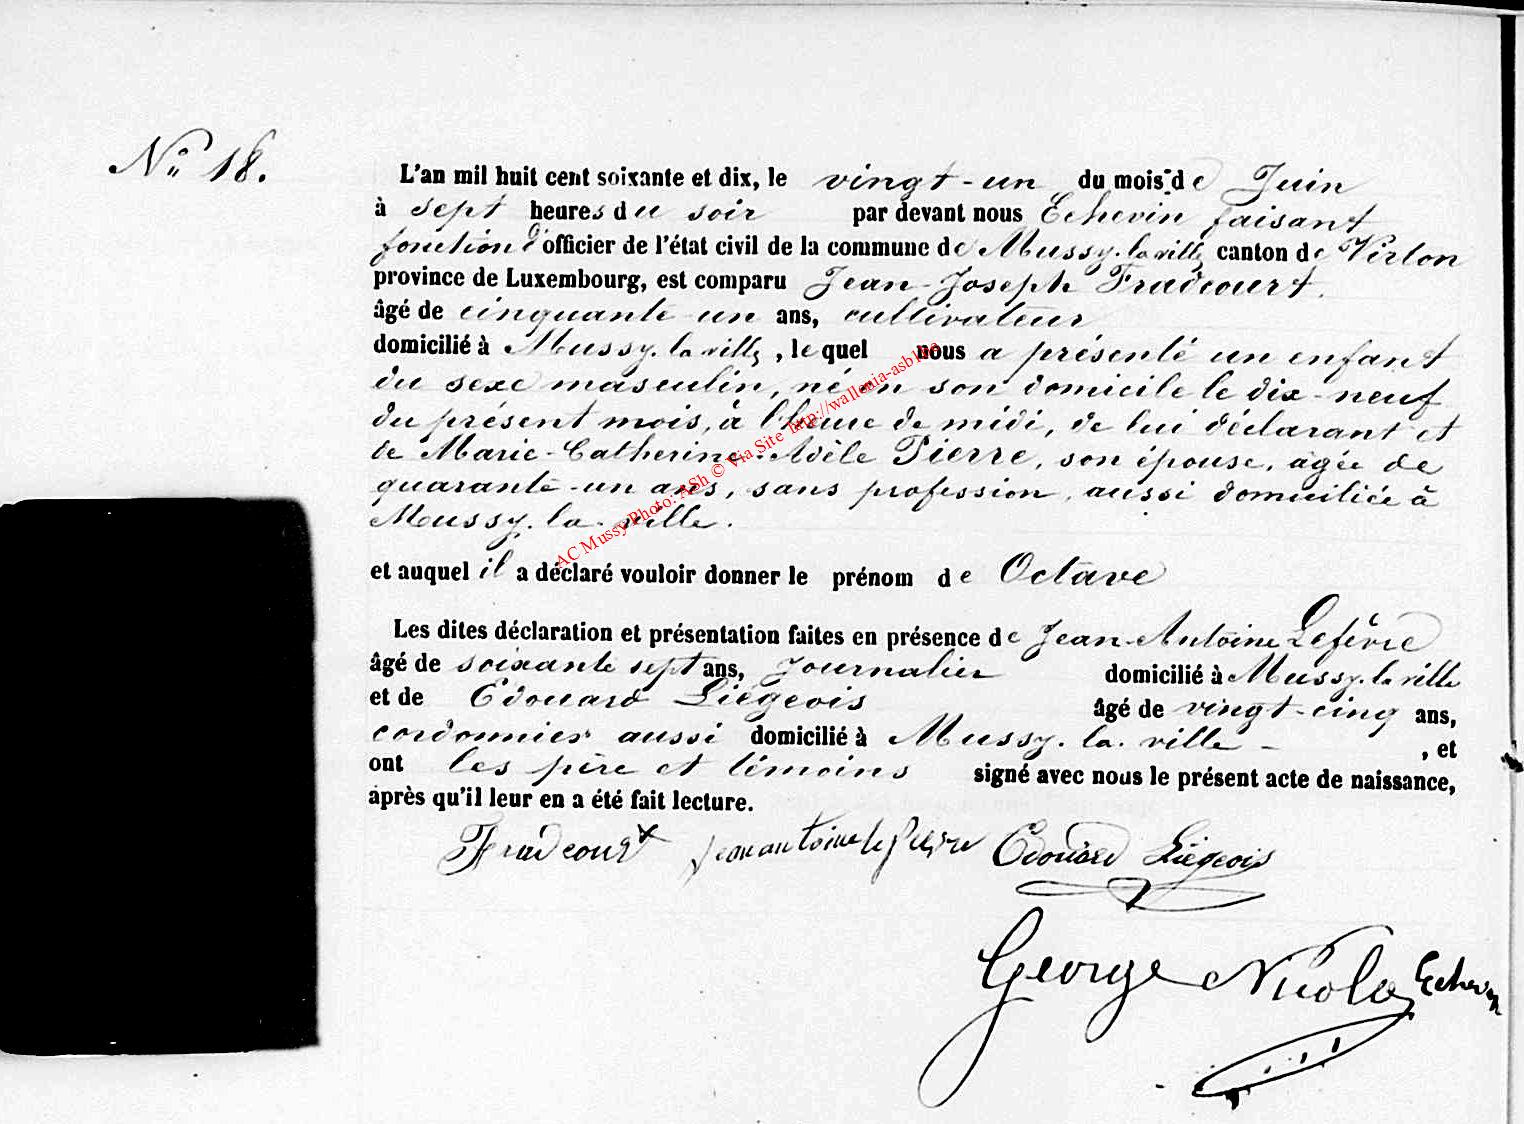 N° 18.
L'an mil huit cent soixante et dix, le vingt-un du mois de Juin
à sept heures du soir par devant nous Echevin faisant
fonction d'officier de l'état civil de la commune de Mussy-la-ville, canton de Virton
province de Luxembourg, est comparu Jean-Joseph Fradcourt,
âgé de cinquante-un ans, cultivateur
domicilié à Mussy-la-ville, lequel nous a présenté un enfant
du sexe masculin, né en son domicile le dix-neuf
du présent mois, à l'heure de midi, de lui déclarant et
de Marie-Catherine-Adèle Pierre, son épouse, agée de
quarante-un ans, sans profession, aussi domiciliée à
Mussy-la-ville.
AC Mussy Photo: ASh © Via Site http://wallonia-asbl.be
et auquel il a déclaré vouloir donner le prénom de Octave
Les dites déclaration et présentation faites en présence de Jean-Antoine Lefèvre
âgé de soixante sept ans, Journalier domicilié à Mussy-la-ville
et de Edouard Liégeois âgé de vingt-cinq ans,
cordonnier aussi domicilié à Mussy-la-ville - , et
ont les père et témoins signé avec nous le présent acte de naissance,
après qu'il leur en a été fait lecture.
Fradcourt Jean antoine lefevre Edouard Liégeois
George Nicolas Echevin